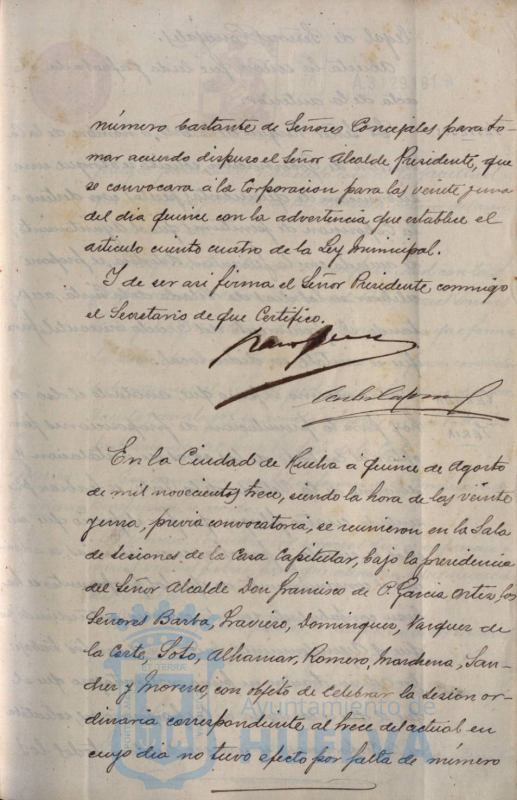 número bastante de Señores Concejales para to-
mar acuerdo dispuso el Señor Alcalde Presidente, que
se convocara á la Corporacion para las veinte y una
del dia quince con la advertencia que establece el
artículo ciento cuatro de la Ley Municipal.
Y de ser asi firma el Señor Presidente conmigo
el Secretario de que Certifico.
En la Ciudad de Huelva á quince de Agosto
de mil novecientos trece, siendo la hora de las veinte
y una, previa convocatoria, se reunieron en la Sala
de sesiones de la Casa Capitular, bajo la presidencia
del Señor Alcalde Don Francisco de P. Garcia Ortiz, los
Señores Barba, Travieso, Dominguez, Vazquez de
la Corte, Soto, Alhamar, Romero, Marchena, San-
chez y Moreno, con objeto de celebrar la sesion or-
dinaria correspondiente al trece del actual en
cuyo dia no tuvo efecto por falta de número
Ayuntamiento de
HUELVA